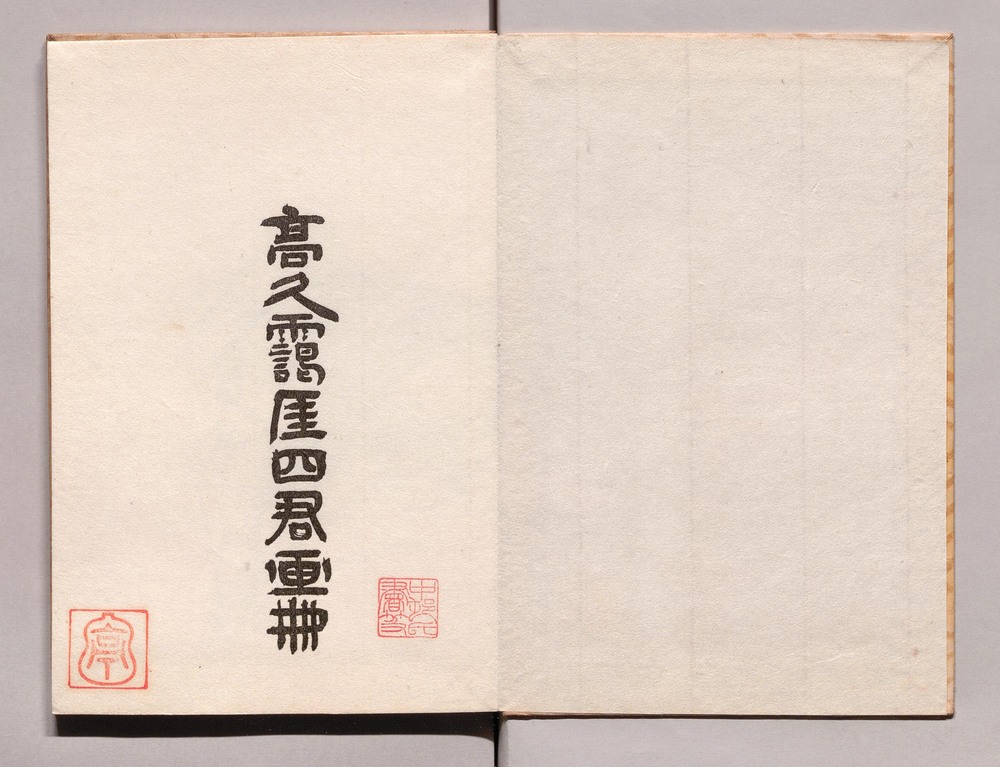 高久靄厓四君画冊